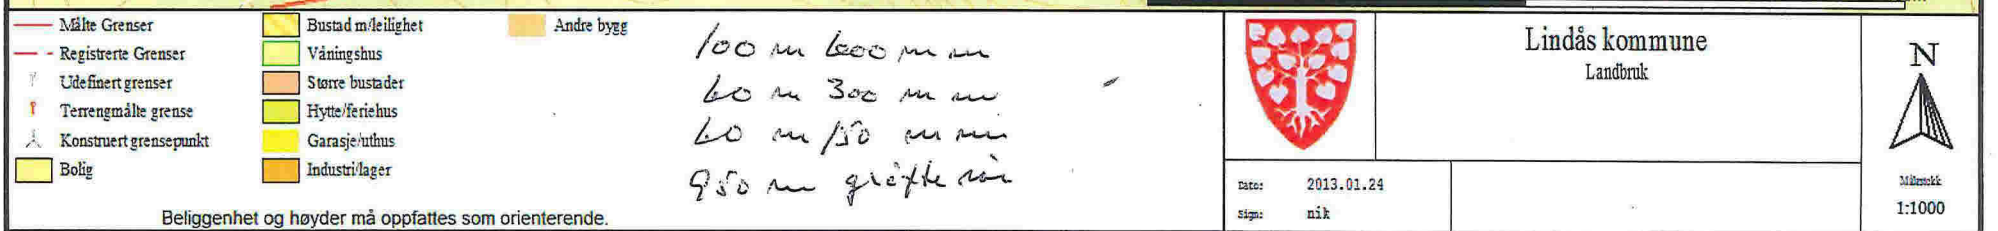 Målte Grenser
Registrerte Grenser
Udefinert grenser
Terrengmålte grense
Konstruert grensepunkt
Bolig
Bustad m/leilighet
Våningshus
Større bustader
Hytte/feriehus
Garasje/uthus
Industri/lager
Andre bygg
Beliggenhet og høyder må oppfattes som orienterende.
100 m 600 m m
60 m 300 m m
60 m 150 m m
950 m grøfte rør
Lindås kommune
Landbruk
Dato: 2013.01.24
Sign: nik
N
Målestokk
1:1000